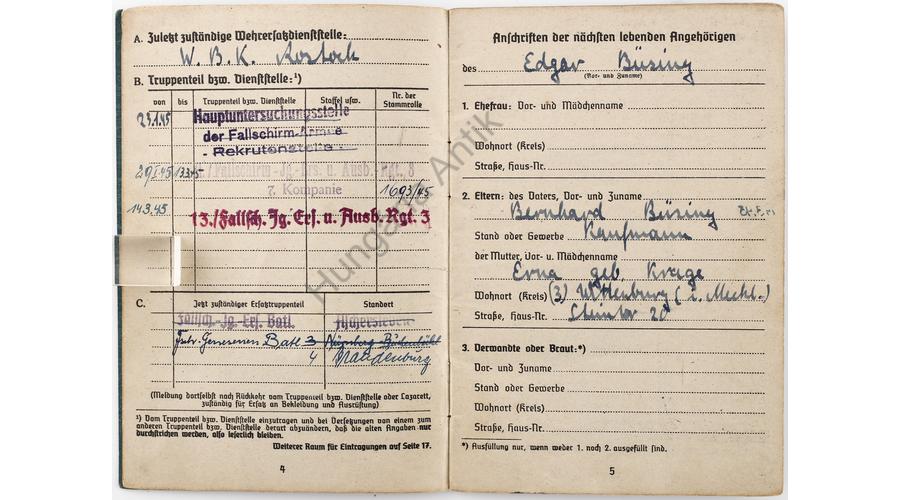 A. Zuletzt zuständige Wehrersatzdienststelle:
W. B. K. Rostock
B. Truppenteil bzw. Dienststelle:¹)
von bis Truppenteil bzw. Dienststelle Staffel usw. Nr. der Stammrolle
23.1.45 Hauptuntersuchungsstelle
der Fallschirm-Armee
- Rekrutenstelle -
29.I.45 13.3.45 /Fallschirm-Jg.-Ers. u. Ausb.-Rgt. 3
7. Kompanie 1693/45
14.3.45 13./Fallsch. Jg. Ers. u. Ausb. Rgt. 3
C. Jetzt zuständiger Ersatztruppenteil Standort
Fallsch.-Jg.-Ers. Batl. Aschersleben
Batl 3
4 Brandenburg
(Meldung dortselbst nach Rückkehr vom Truppenteil bzw. Dienststelle oder Lazarett,
zuständig für Ersatz an Bekleidung und Ausrüstung)
¹) Vom Truppenteil bzw. Dienststelle einzutragen und bei Versetzungen von einem zum
anderen Truppenteil bzw. Dienststelle derart abzuändern, daß die alten Angaben nur
durchstrichen werden, also leserlich bleiben.
Weiterer Raum für Eintragungen auf Seite 17.
4
Anschriften der nächsten lebenden Angehörigen
des Edgar Büsing
(Vor- und Zuname)
1. Ehefrau: Vor- und Mädchenname
Wohnort (Kreis)
Straße, Haus-Nr.
2. Eltern: des Vaters, Vor- und Zuname
Bernhard Büsing
Stand oder Gewerbe Kaufmann
der Mutter, Vor- u. Mädchenname
Erna geb Krage
Wohnort (Kreis) (3) Wittenburg (i. Meckl.)
Straße, Haus-Nr. Steintor
3. Verwandte oder Braut:*)
Vor- und Zuname
Stand oder Gewerbe
Wohnort (Kreis)
Straße, Haus-Nr.
*) Ausfüllung nur, wenn weder 1. noch 2. ausgefüllt sind.
5
Hungaria Antik